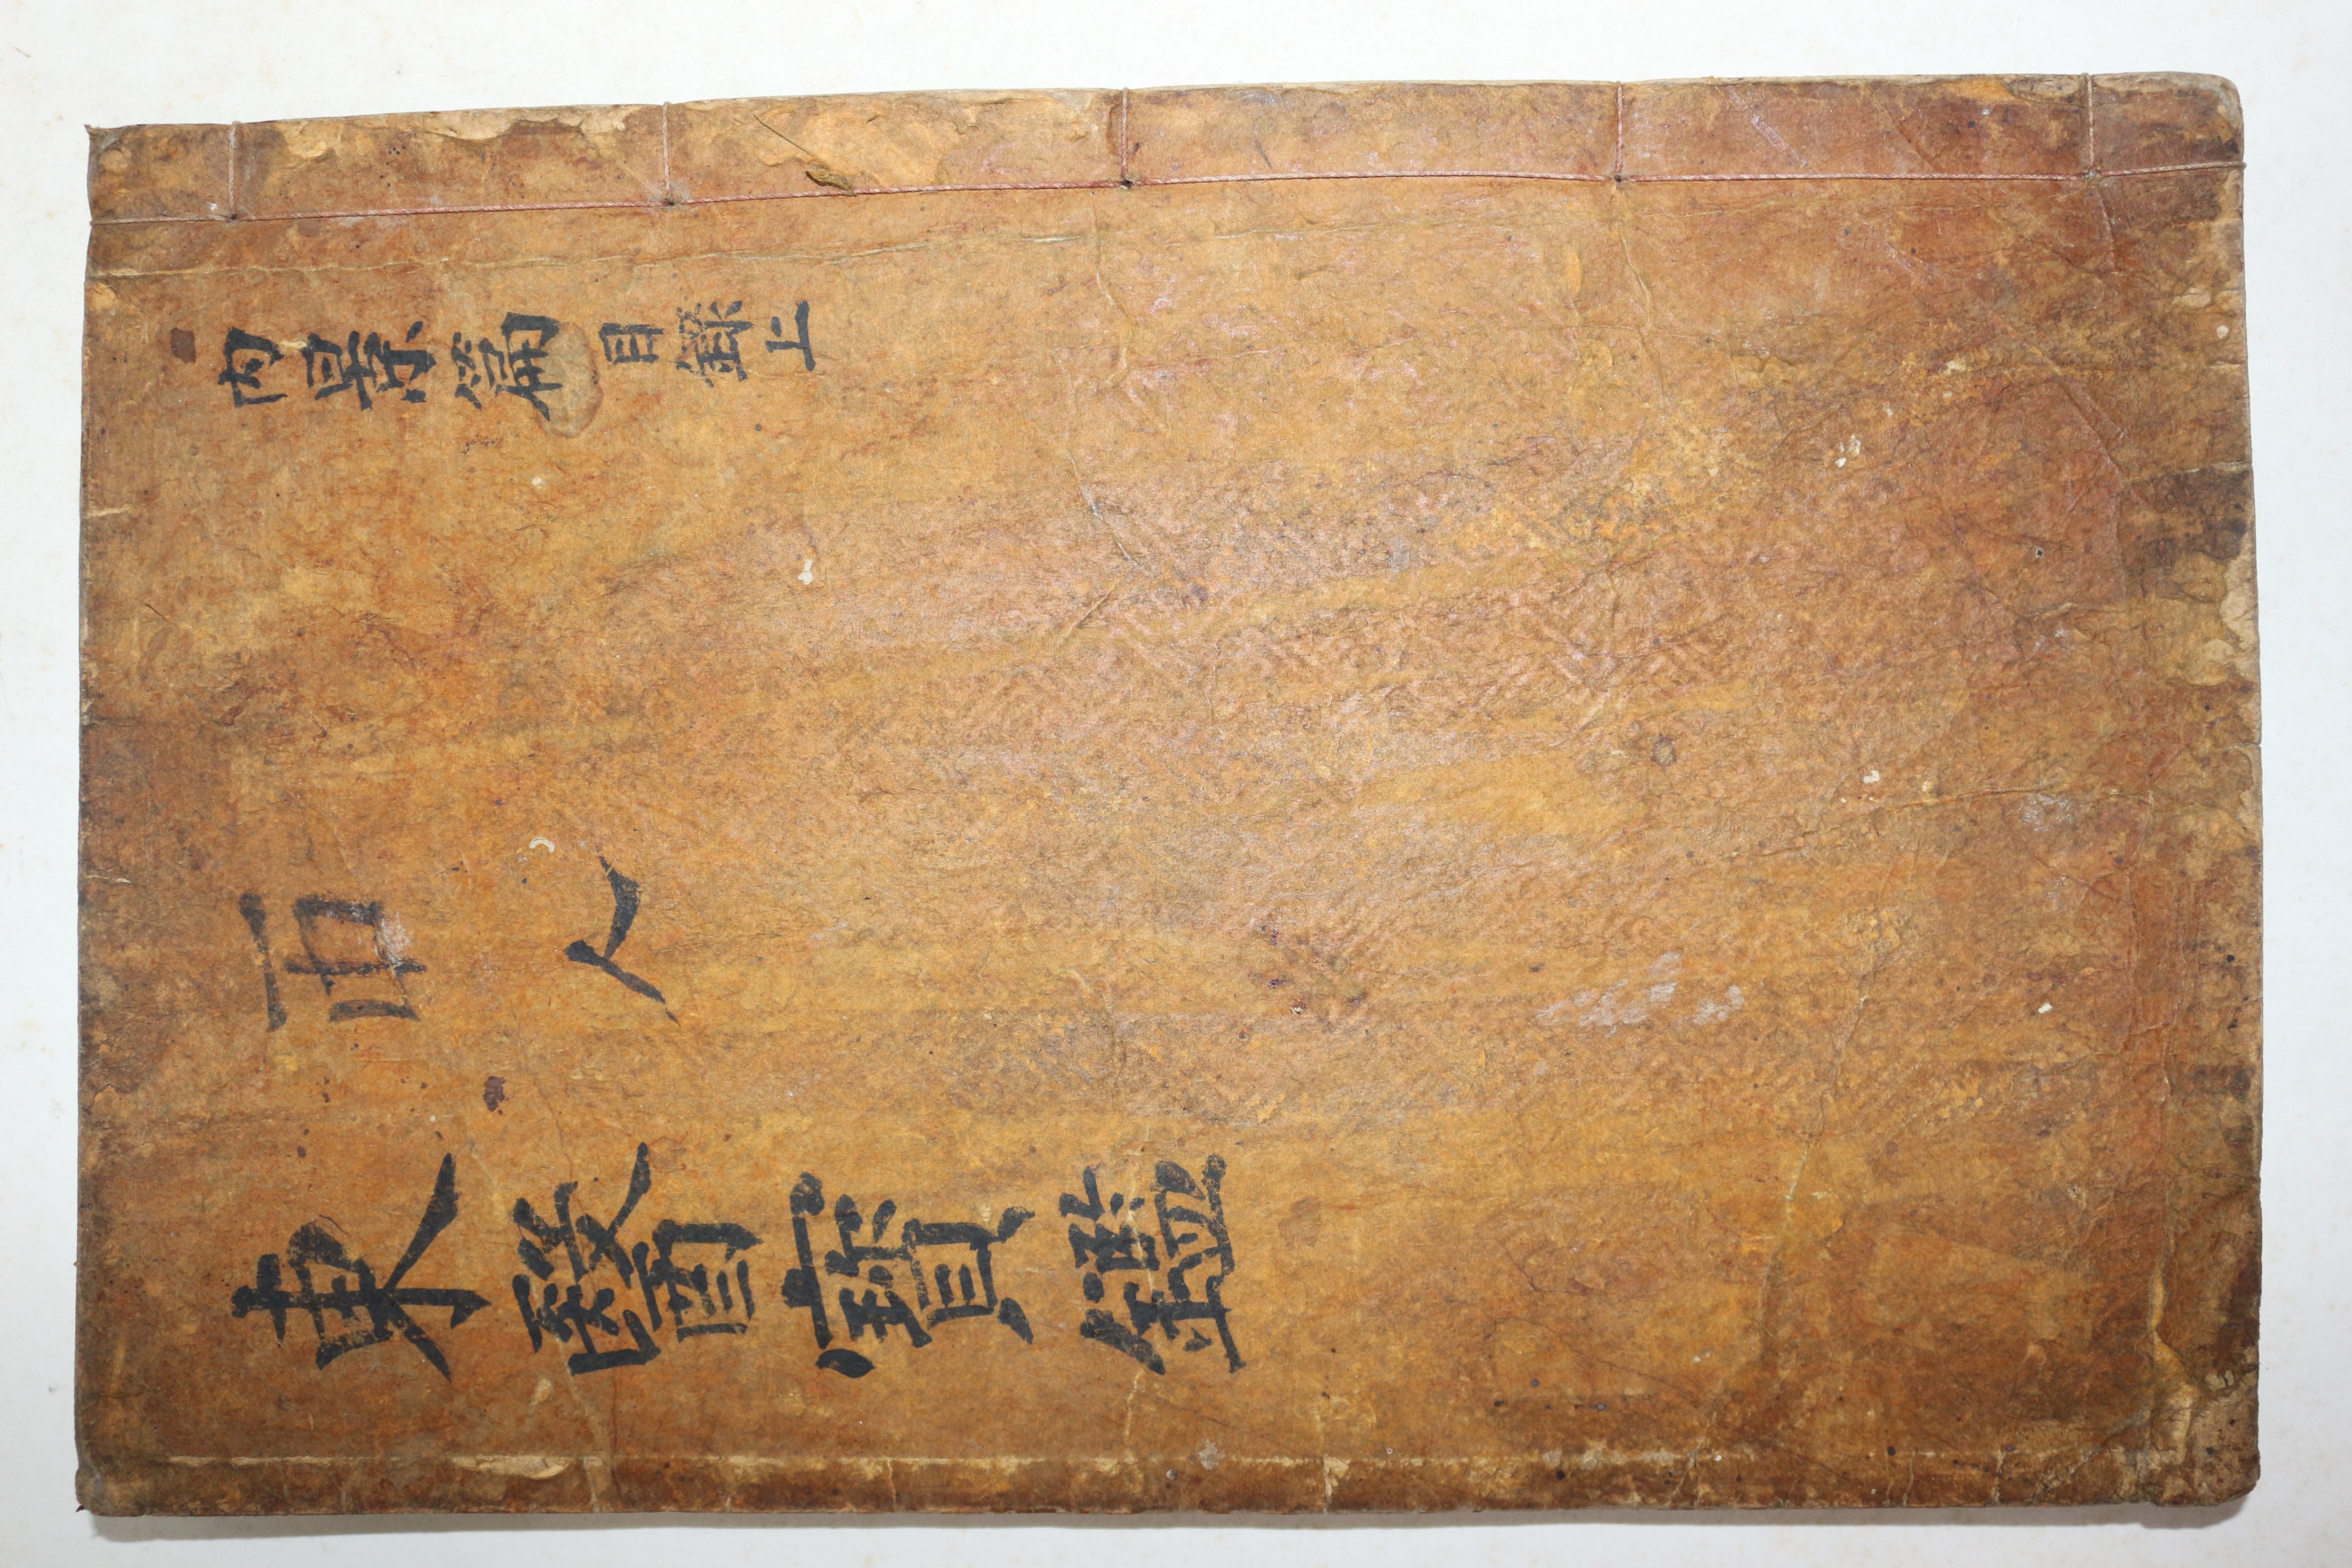 內景篇目錄上
人
東醫寶鑑